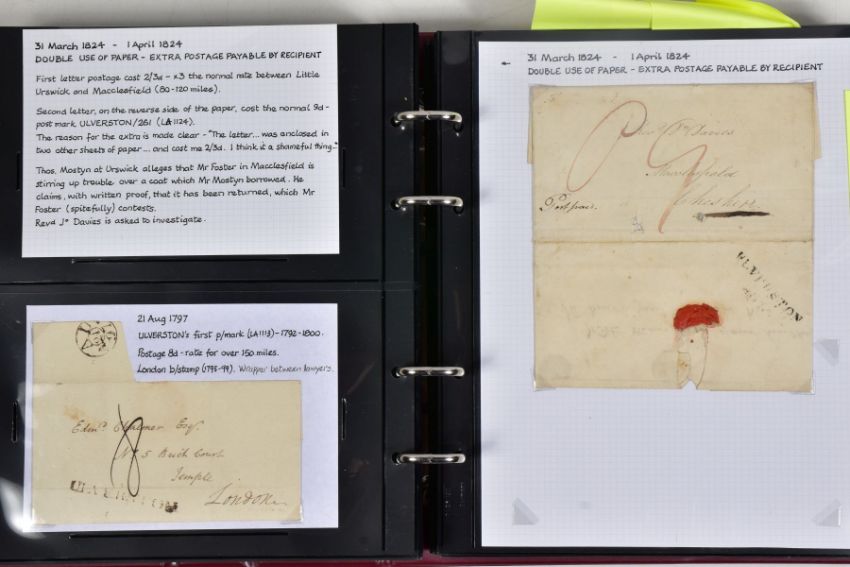 31 March 1824 - 1 April 1824
DOUBLE USE OF PAPER - EXTRA POSTAGE PAYABLE BY RECIPIENT
First letter postage cost 2/3d - x3 the normal rate between Little
Urswick and Macclesfield (80-120 miles).
Second letter, on the reverse side of the paper, cost the normal 9d -
post mark ULVERSTON/261 (LA1124).
The reason for the extra is made clear - "The letter... was enclosed in
two other sheets of paper... and cost me 2/3d. I think it a shameful thing."
Thos. Mostyn at Urswick alleges that Mr Foster in Macclesfield is
stirring up trouble over a coat which Mr Mostyn borrowed. He
claims, with written proof, that it has been returned, which Mr
Foster (spitefully) contests.
Revd Jo Davies is asked to investigate.
21 Aug 1797
ULVERSTON's first p/mark (LA1113) - 1792-1800.
Postage 8d - rate for over 150 miles.
London b/stamp (1795-99). Wrapper between lawyers.
Edmd. Chalmer Esqr.
8
No 5 Inner Court
Temple
London
31 March 1824 - 1 April 1824
DOUBLE USE OF PAPER - EXTRA POSTAGE PAYABLE BY RECIPIENT
Davies
9
Macclesfield
Cheshire
Post paid.
ULVERSTON